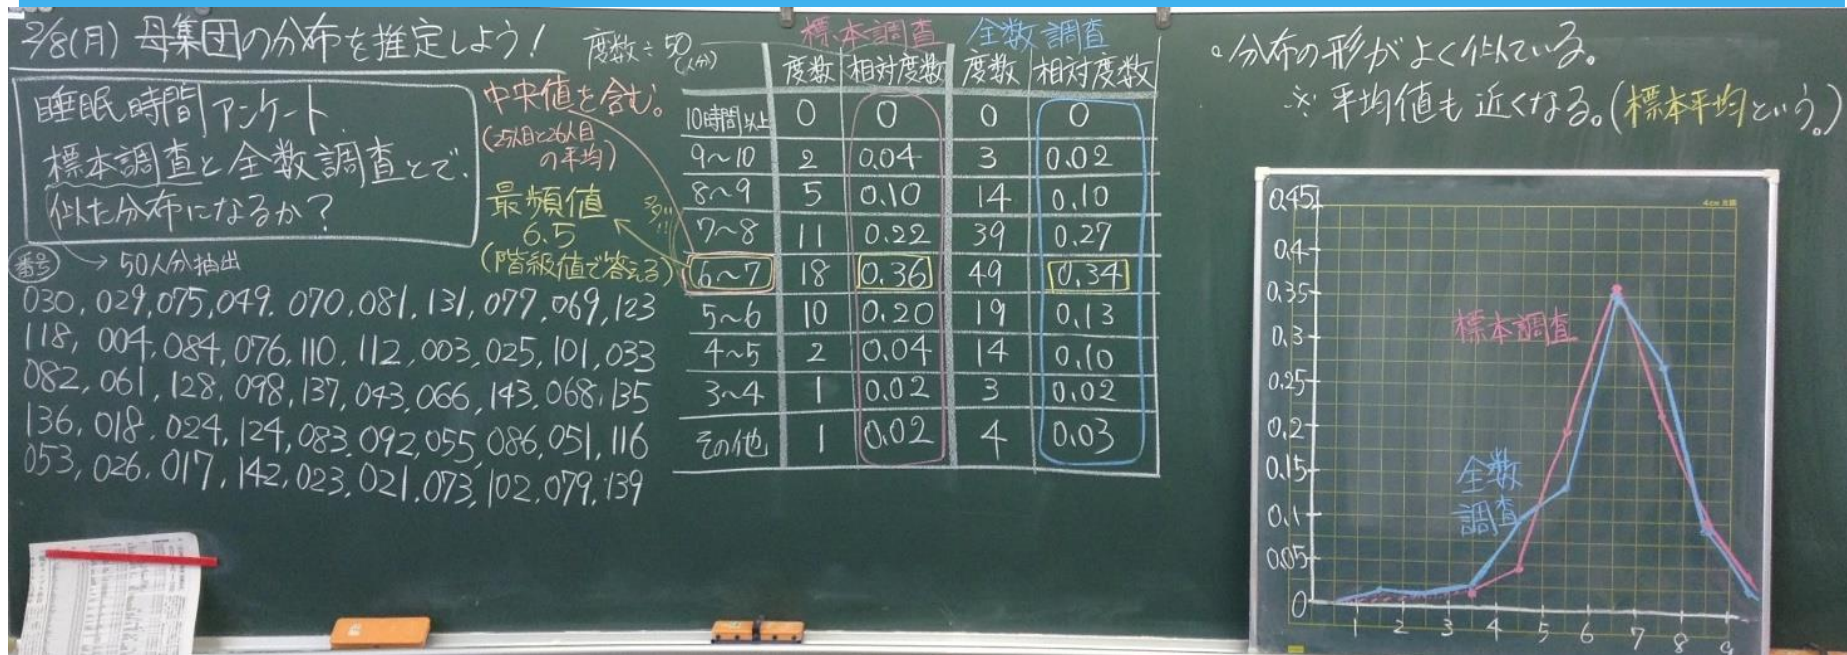 2/8(月) 母集団の分布を推定しよう!
睡眠時間アンケート
標本調査と全数調査とで、
似た分布になるか?
番号 → 50人分抽出
030, 029, 075, 049, 070, 081, 131, 077, 069, 123
118, 004, 084, 076, 110, 112, 003, 025, 101, 033
082, 061, 128, 098, 137, 043, 066, 143, 068, 135
136, 018, 024, 124, 083, 092, 055, 086, 051, 116
053, 026, 017, 142, 023, 021, 073, 102, 079, 139
中央値を含む。
(25人目と26人目
の平均)
最頻値
6.5
(階級値で答える)
多!!
度数÷50
(人分)
標本調査 全数調査
度数 相対度数 度数 相対度数
10時間以上 0 0 0 0
9~10 2 0.04 3 0.02
8~9 5 0.10 14 0.10
7~8 11 0.22 39 0.27
6~7 18 0.36 49 0.34
5~6 10 0.20 19 0.13
4~5 2 0.04 14 0.10
3~4 1 0.02 3 0.02
その他 1 0.02 4 0.03
。分布の形がよく似ている。
※平均値も近くなる。(標本平均という。)
0.45
0.4
0.35
0.3
0.25
0.2
0.15
0.1
0.05
0
標本調査
全数
調査
1 2 3 4 5 6 7 8 9